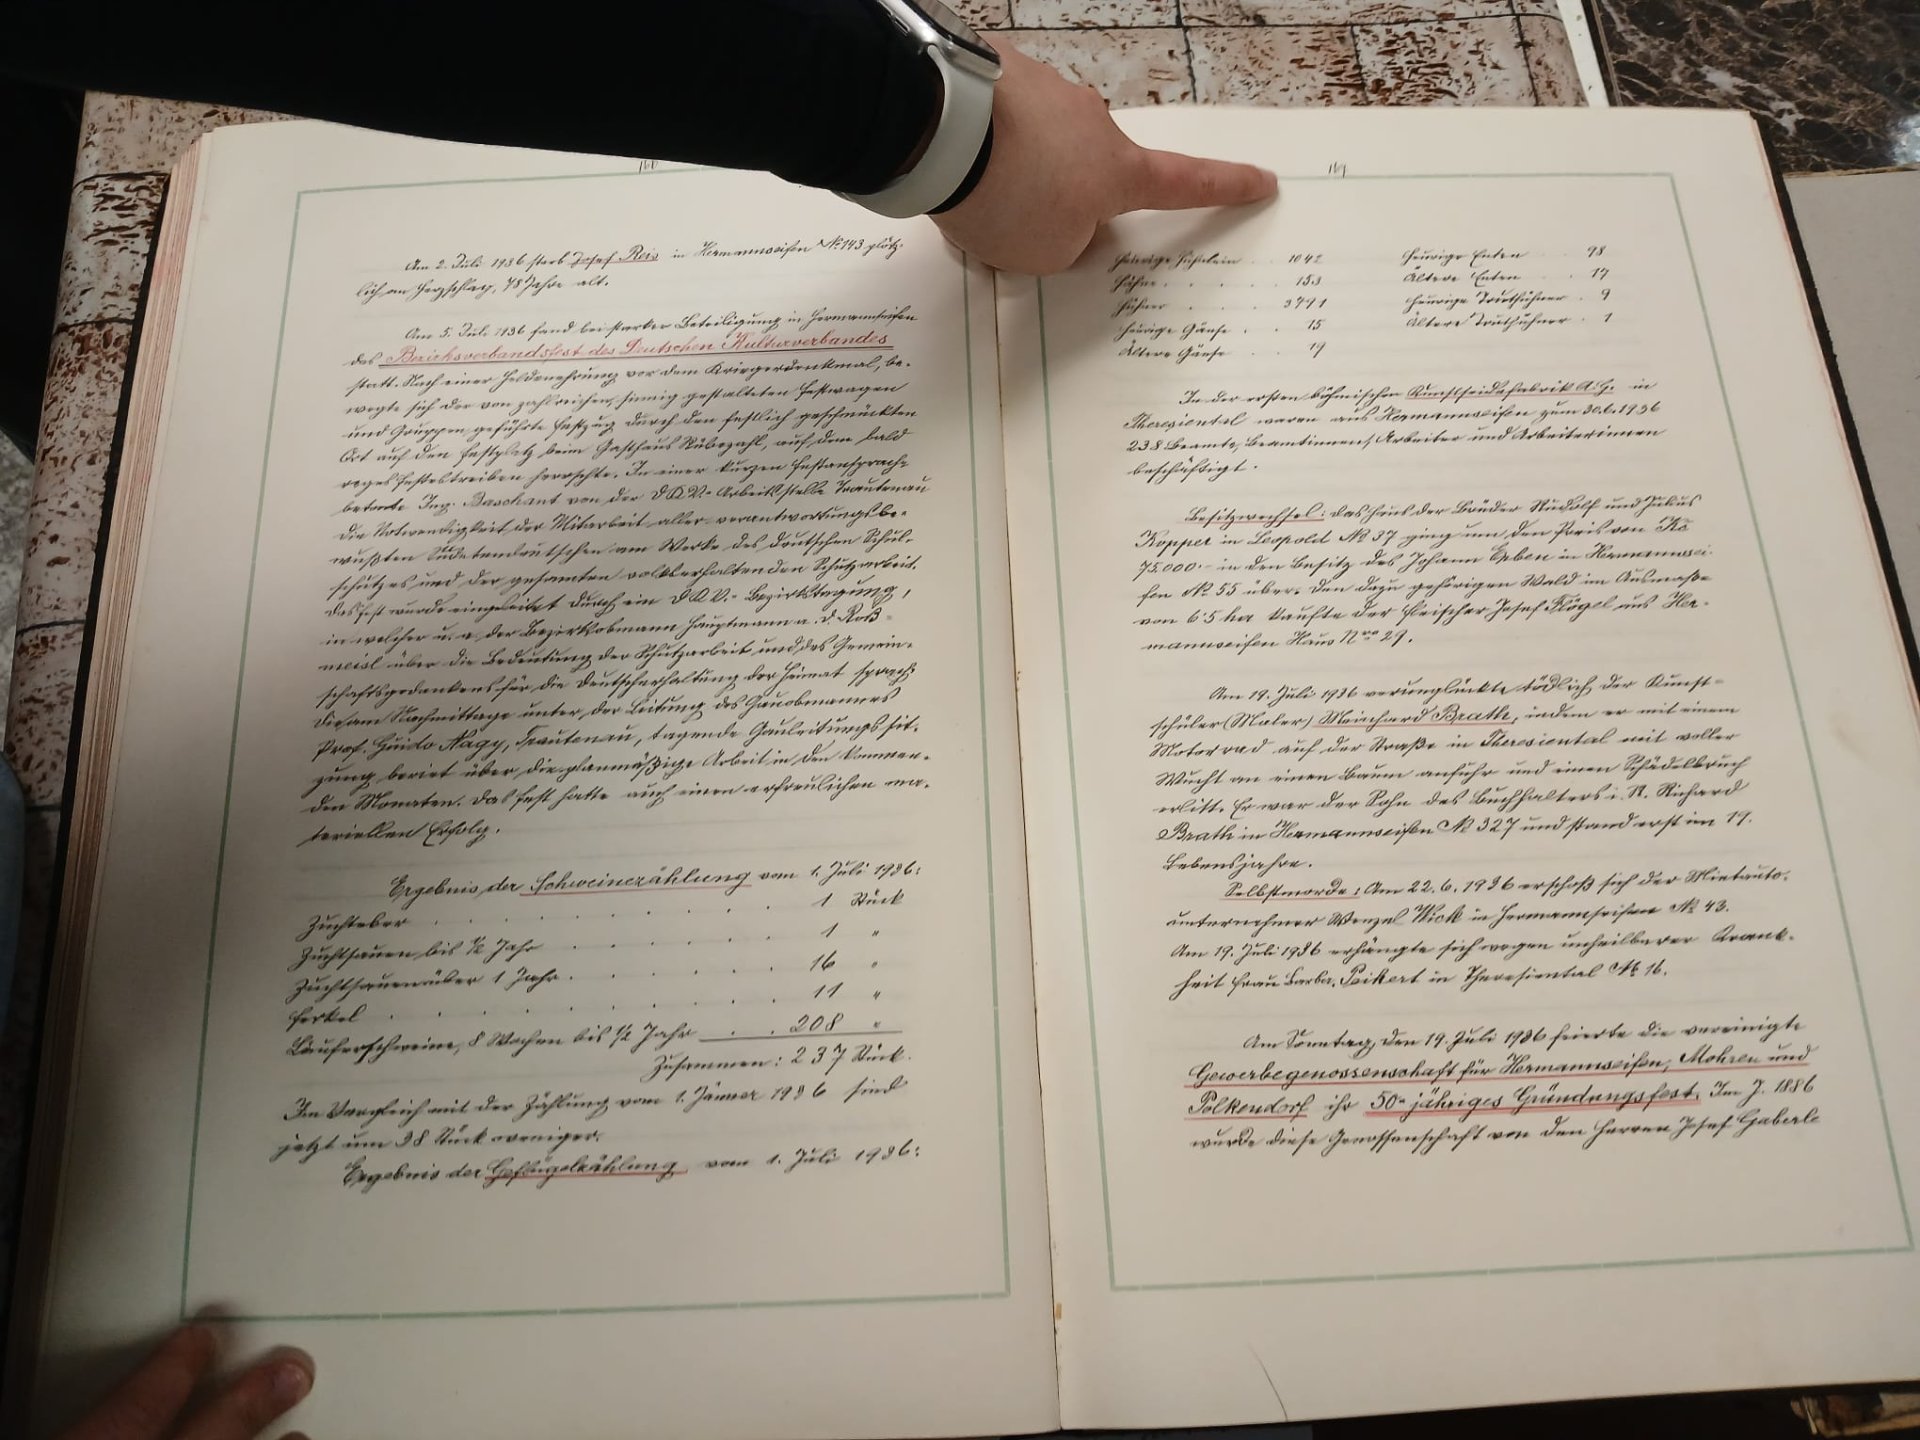 160
Am 2. Juli 1936 starb Josef Reis in Hermannseifen No 143 plötz-
lich an Herzschlag, 78 Jahre alt.
Am 5. Juli 1936 fand bei starker Beteiligung in Hermannseifen
das Bezirksverbandsfest des Deutschen Kulturverbandes
statt. Nach einer Heldenehrung vor dem Kriegerdenkmal, be-
wegte sich der von zahlreichen, sinnig gestalteten Festwagen
und Gruppen geführte Festzug durch den festlich geschmückten
Ort auf den Festplatz beim Gasthaus Rübezahl, auf dem bald
reges Festestreiben herrschte. In einer kurzen Festansprache
betonte Ing. Baschant von der DKV.-Arbeitsstelle Trautenau
die Notwendigkeit der Mitarbeit aller verantwortungsbe-
wußten Sudetendeutschen am Werke des deutschen Schul-
schutzes und der gesamten volkserhaltenden Schutzarbeit.
Das Fest wurde eingeleitet durch ein DKV.-Bezirkstagung,
in welcher u. a. der Bezirksobmann Hauptmann a. d. Roß-
meisl über die Bedeutung der Schutzarbeit und des Gemein-
schaftsgedankens für die Deutscherhaltung der Heimat sprach.
Die am Nachmittage unter der Leitung des Gauobmannes
Prof. Guido Nagy, Trautenau, tagende Gauleitungssit-
zung beriet über die planmäßige Arbeit in den kommen-
den Monaten. Das Fest hatte auch einen erfreulichen ma-
teriellen Erfolg.
Ergebnis der Schweinezählung vom 1. Juli 1936:
Zuchteber . . . . . . . . 1 Stück
Zuchtsauen bis ½ Jahr . . . . . 1 "
Zuchtsauen über 1 Jahr . . . . . 16 "
Ferkel . . . . . . . . 11 "
Läuferschweine, 8 Wochen bis ½ Jahr . . 208 "
Zusammen: 237 Stück.
Im Vergleich mit der Zählung vom 1. Jänner 1936 sind
jetzt um 38 Stück weniger.
Ergebnis der Geflügelzählung vom 1. Juli 1936:
161
heurige Hühnlein . . 1042 heurige Enten . . 98
Hähne . . . . . 153 Ältere Enten . . 17
Hühner . . . . 3791 heurige Truthühner . 9
heurige Gänse . . 15 Ältere Truthühner . 1
Ältere Gänse . . 19
In der ersten böhmischen Kunstseidefabrik A.G. in
Theresiental waren aus Hermannseifen zum 30.6.1936
238 Beamte, Beamtinnen, Arbeiter und Arbeiterinnen
beschäftigt.
Besitzwechsel: Das Haus der Brüder Rudolf und Julius
Kopper in Leopold No 37 ging um den Preis von Kč
75.000.- in den Besitz des Johann Erben in Hermannsei-
fen No 55 über. Den dazu gehörigen Wald im Ausmaße
von 6.5 ha kaufte der Fleischer Josef Flögel aus Her-
mannseifen Haus Nro 29.
Am 19. Juli 1936 verunglückte tödlich der Kunst-
schüler (Maler) Meinhard Brath, indem er mit einem
Motorrad auf der Straße in Theresiental mit voller
Wucht an einen Baum anfuhr und einen Schädelbruch
erlitt. Er war der Sohn des Buchhalters i. R. Richard
Brath in Hermannseifen No 327 und stand erst im 19.
Lebensjahre.
Selbstmorde: Am 22.6.1936 erschoß sich der Mietauto-
unternehmer Wenzel Wick in Hermannseifen No 43.
Am 19. Juli 1936 erhängte sich wegen unheilbarer Krank-
heit Frau Barba. Peikert in Theresiental No 16.
Am Sonntag, den 19. Juli 1936 feierte die vereinigte
Gewerbegenossenschaft für Hermannseifen, Mohren und
Polkendorf ihr 50-jähriges Gründungsfest. Im J. 1886
wurde diese Genossenschaft von den Herren Josef Gaberle